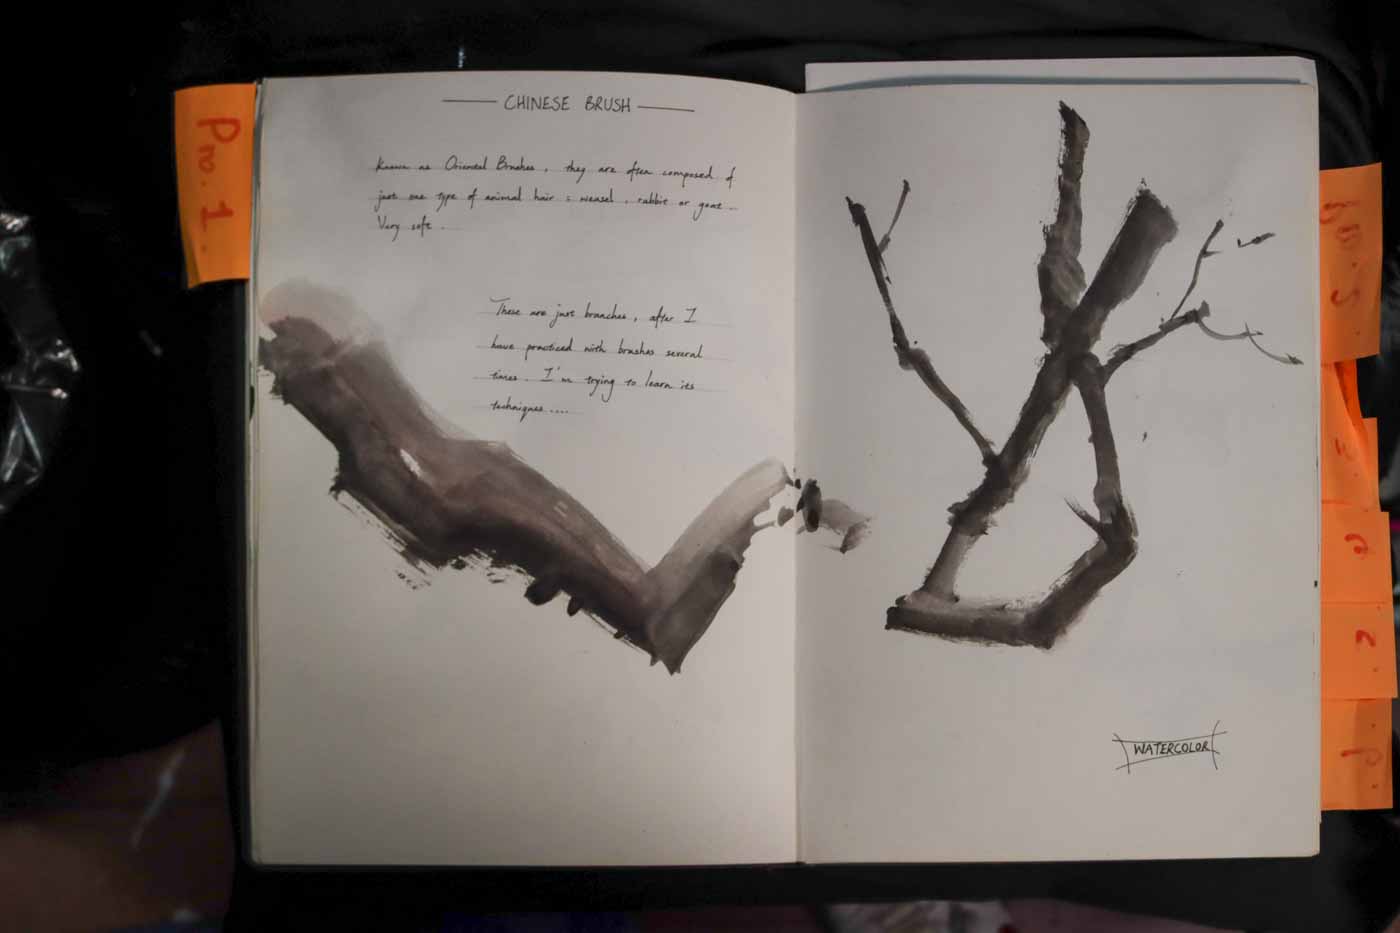 Pro. 1.
CHINESE BRUSH
Known as Oriental Brushes, they are often composed of
just one type of animal hair : weasel, rabbit or goat...
Very soft.
These are just branches, after I
have practiced with brushes several
times. I'm trying to learn its
techniques....
WATERCOLOR